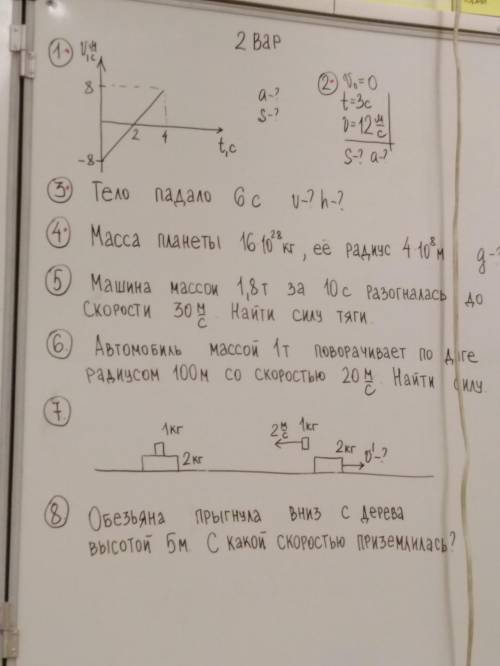 2 вар
1. V, м/с
8
-8
2
4
t, с
a-?
s-?
2. V₀=0
t=3с
V=12 м/с
S-? a-?
3. Тело падало 6с v-? h-?
4. Масса планеты 16·10²⁸кг, её радиус 4·10⁸м g-?
5. Машина массой 1,8т за 10с разогналась до
скорости 30 м/с. Найти силу тяги.
6. Автомобиль массой 1т поворачивает по дуге
радиусом 100м со скоростью 20 м/с. Найти силу.
7.
1кг
2кг
2 м/с
1кг
2кг
v'-?
8. Обезьяна прыгнула вниз с дерева
высотой 5м. С какой скоростью приземлилась?